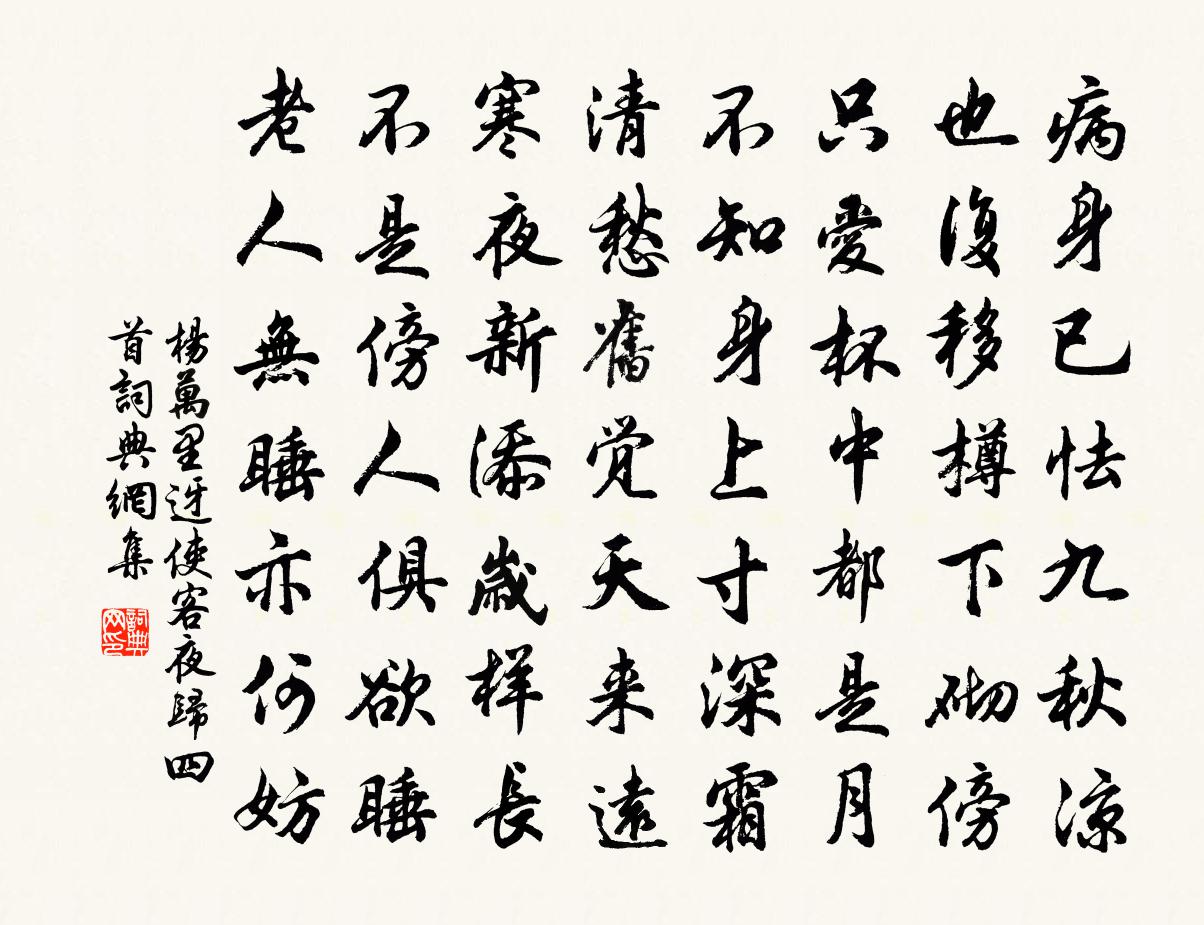 病身已怯九秋凉
也復移樽下砌傍
只愛杯中都是月
不知身上寸深霜
清愁舊觉天来遠
寒夜新添歲样長
不是傍人俱欲睡
老人無睡亦何妨
楊萬里迓使客夜歸四
首詞典網集
詞典
网印